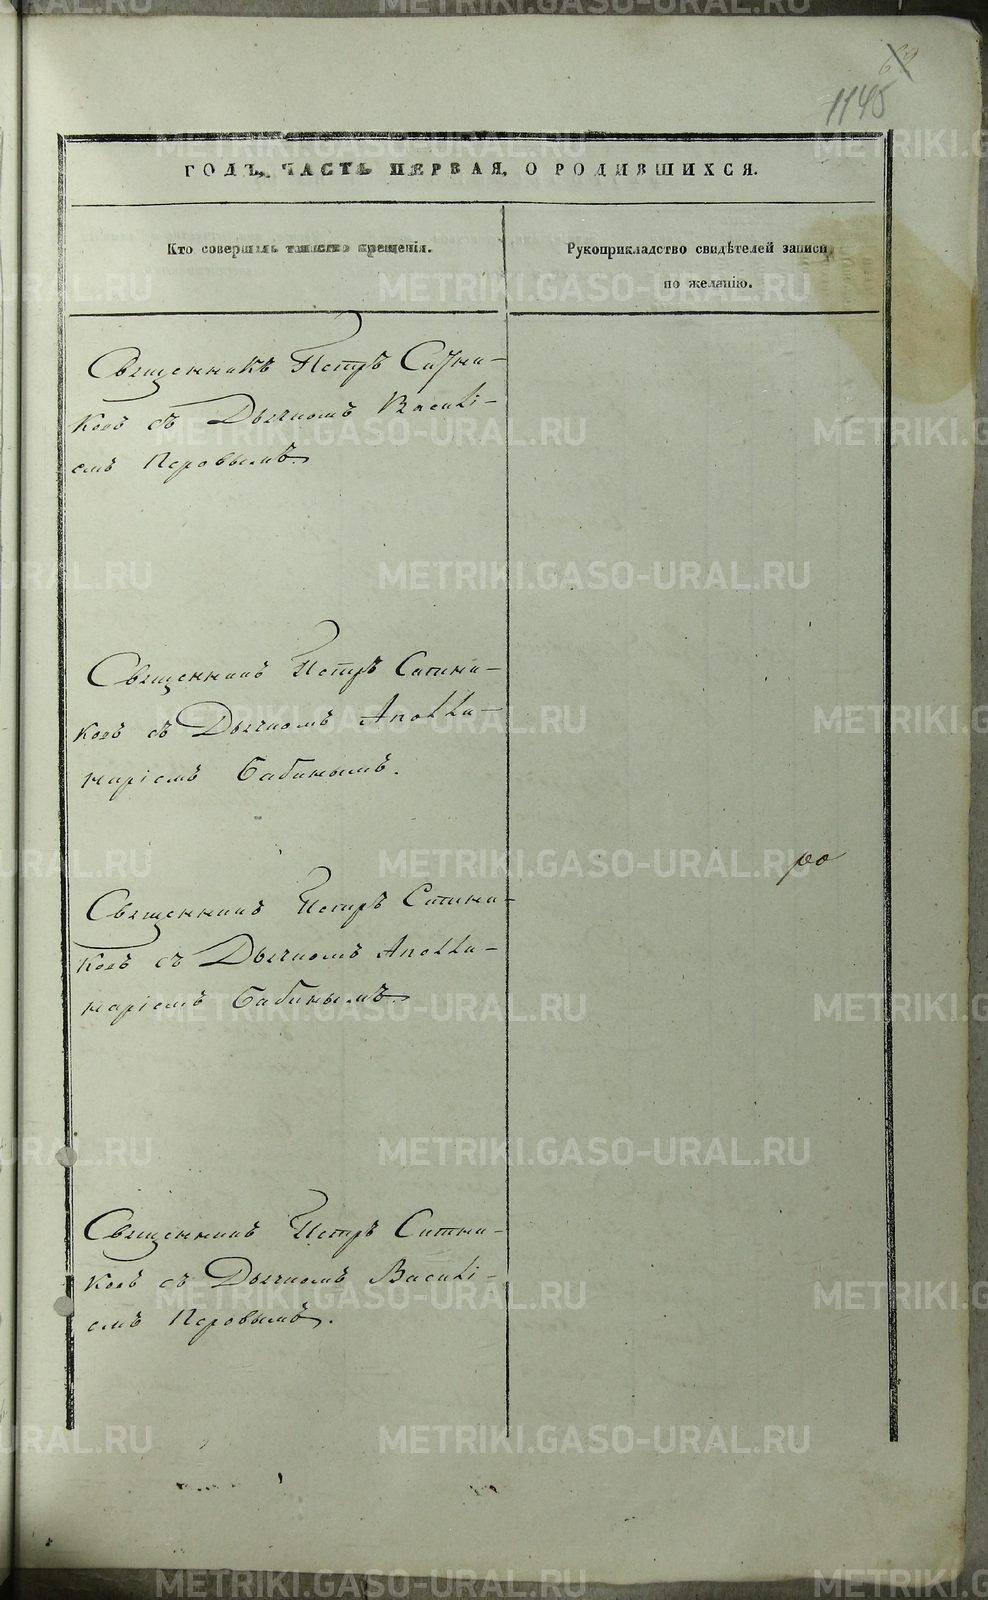 1145
ГОДЪ, ЧАСТЬ ПЕРВАЯ, О РОДИВШИХСЯ.
Кто совершалъ таинство крещенія.
Рукоприкладство свидѣтелей записи
по желанію.
Священникъ Петръ Ситни-
ковъ съ Дьячкомъ Василі-
емъ Перовымъ.
Священникъ Петръ Ситни-
ковъ съ Дьячкомъ Аполли-
наріемъ Бабинымъ.
Священникъ Петръ Ситни-
ковъ съ Дьячкомъ Аполли-
наріемъ Бабинымъ.
Священникъ Петръ Ситни-
ковъ съ Дьячкомъ Василі-
емъ Перовымъ.
METRIKI.GASO-URAL.RU